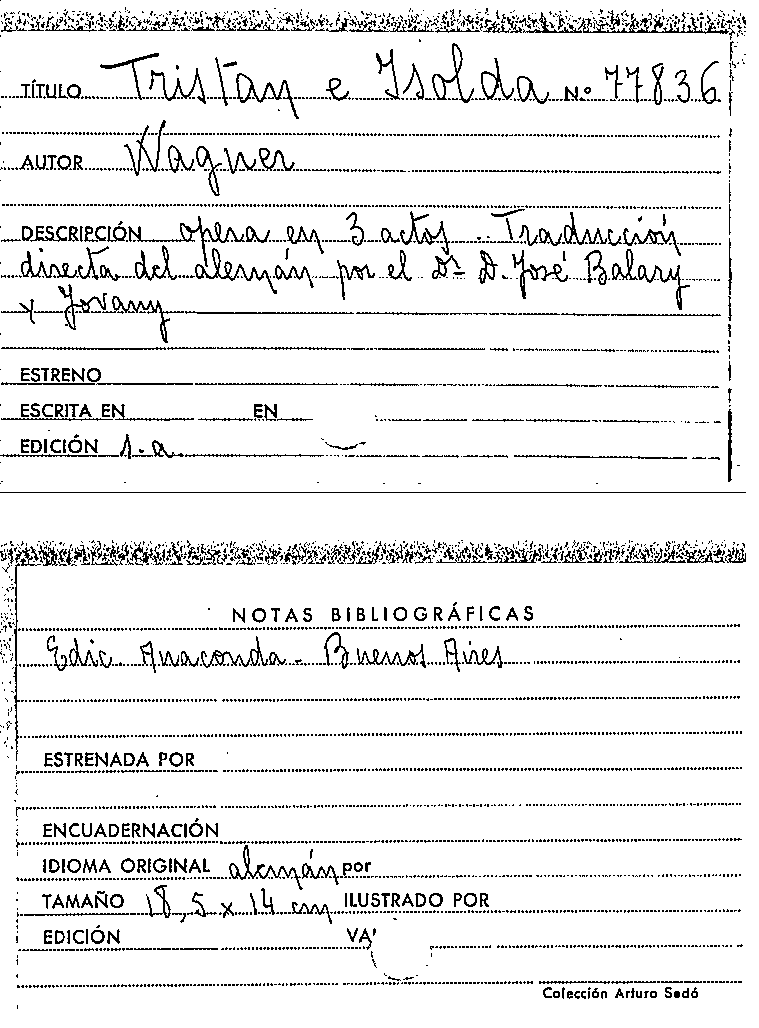 TÍTULO Tristan e Isolda N.º 77836
AUTOR Wagner
DESCRIPCIÓN opera en 3 actos. Traducción
directa del alemán por el Dr. D. José Balary
y Jovany
ESTRENO
ESCRITA EN EN
EDICIÓN 1.a
NOTAS BIBLIOGRÁFICAS
Edic. Anaconda - Buenos Aires
ESTRENADA POR
ENCUADERNACIÓN
IDIOMA ORIGINAL alemán por
TAMAÑO 18,5 x 14 cm ILUSTRADO POR
EDICIÓN VA
Colección Arturo Sedó